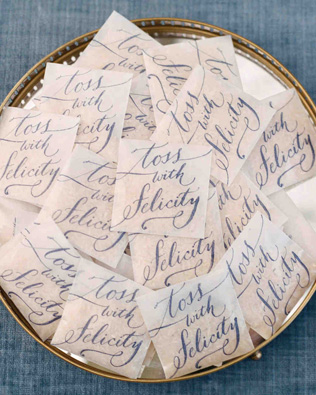 Toss
Toss
with
Felicity
Toss
with
Felicity
Toss
with
Felicity
Toss
with
Felicity
Toss
with
Felicity
Toss
with
Felicity
Toss
with
Felicity
Felicity
Felicity
Toss
with
Felicity
Toss
with
Felicity
Toss
with
Felicity
Toss
with
Felicity